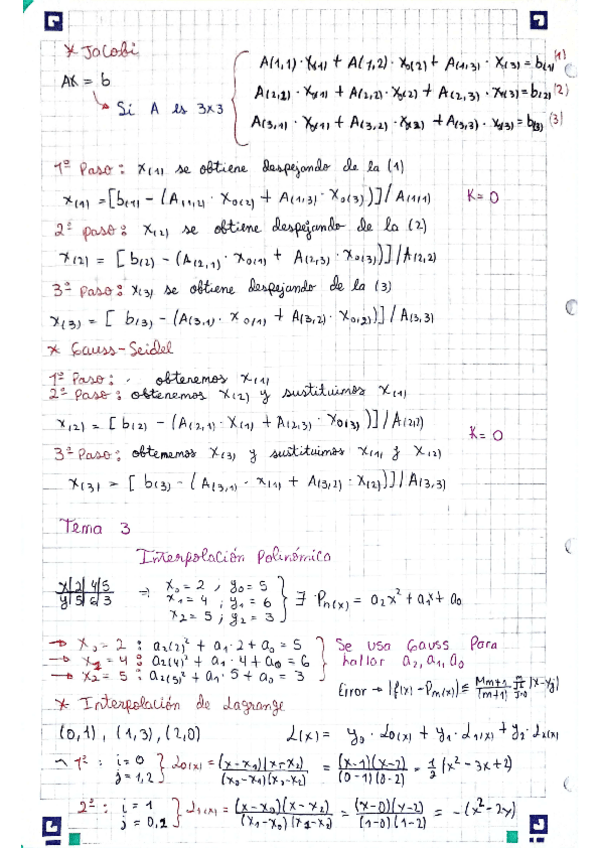 * Jacobi
AX = b
↳ Si A es 3x3
A(1,1) · X(1) + A(1,2) · X(2) + A(1,3) · X(3) = b(1) (1)
A(2,1) · X(1) + A(2,2) · X(2) + A(2,3) · X(3) = b(2) (2)
A(3,1) · X(1) + A(3,2) · X(2) + A(3,3) · X(3) = b(3) (3)
1º Paso: X(1) se obtiene despejando de la (1)
X(1) = [b(1) - (A(1,2) · X0(2) + A(1,3) · X0(3))] / A(1,1) K = 0
2º paso: X(2) se obtiene despejando de la (2)
X(2) = [b(2) - (A(2,1) · X0(1) + A(2,3) · X0(3))] / A(2,2)
3º Paso: X(3) se obtiene despejando de la (3)
X(3) = [b(3) - (A(3,1) · X0(1) + A(3,2) · X0(2))] / A(3,3)
* Gauss-Seidel
1º Paso: obtenemos X(1)
2º Paso: obtenemos X(2) y sustituimos X(1)
X(2) = [b(2) - (A(2,1) · X(1) + A(2,3) · X0(3))] / A(2,2) K = 0
3º Paso: obtenemos X(3) y sustituimos X(1) y X(2)
X(3) = [b(3) - (A(3,1) · X(1) + A(3,2) · X(2))] / A(3,3)
Tema 3
Interpolación Polinómica
x | 2 | 4 | 5
y | 5 | 6 | 3
⇒ x0 = 2 ; y0 = 5
x1 = 4 ; y1 = 6
x2 = 5 ; y2 = 3
∃ Pn(x) = a2x² + a1x + a0
→ X0 = 2 : a2(2)² + a1 · 2 + a0 = 5
→ X1 = 4 : a2(4)² + a1 · 4 + a0 = 6
→ X2 = 5 : a2(5)² + a1 · 5 + a0 = 3
Se usa Gauss Para
hallar a2, a1, a0
Error → |f(x) - Pm(x)| ≤ Mm+1/(m+1)! π j=0 |x-xj|
* Interpolación de Lagrange
(0,1), (1,3), (2,0) L(x) = y0 · L0(x) + y1 · L1(x) + y2 · L2(x)
1º : i = 0
j = 1,2
L0(x) = (x-x1)(x-x2)/(x0-x1)(x0-x2) = (x-1)(x-2)/(0-1)(0-2) = 1/2 (x² - 3x + 2)
2º : i = 1
j = 0,2
L1(x) = (x-x0)(x-x2)/(x1-x0)(x1-x2) = (x-0)(x-2)/(1-0)(1-2) = -(x² - 2x)